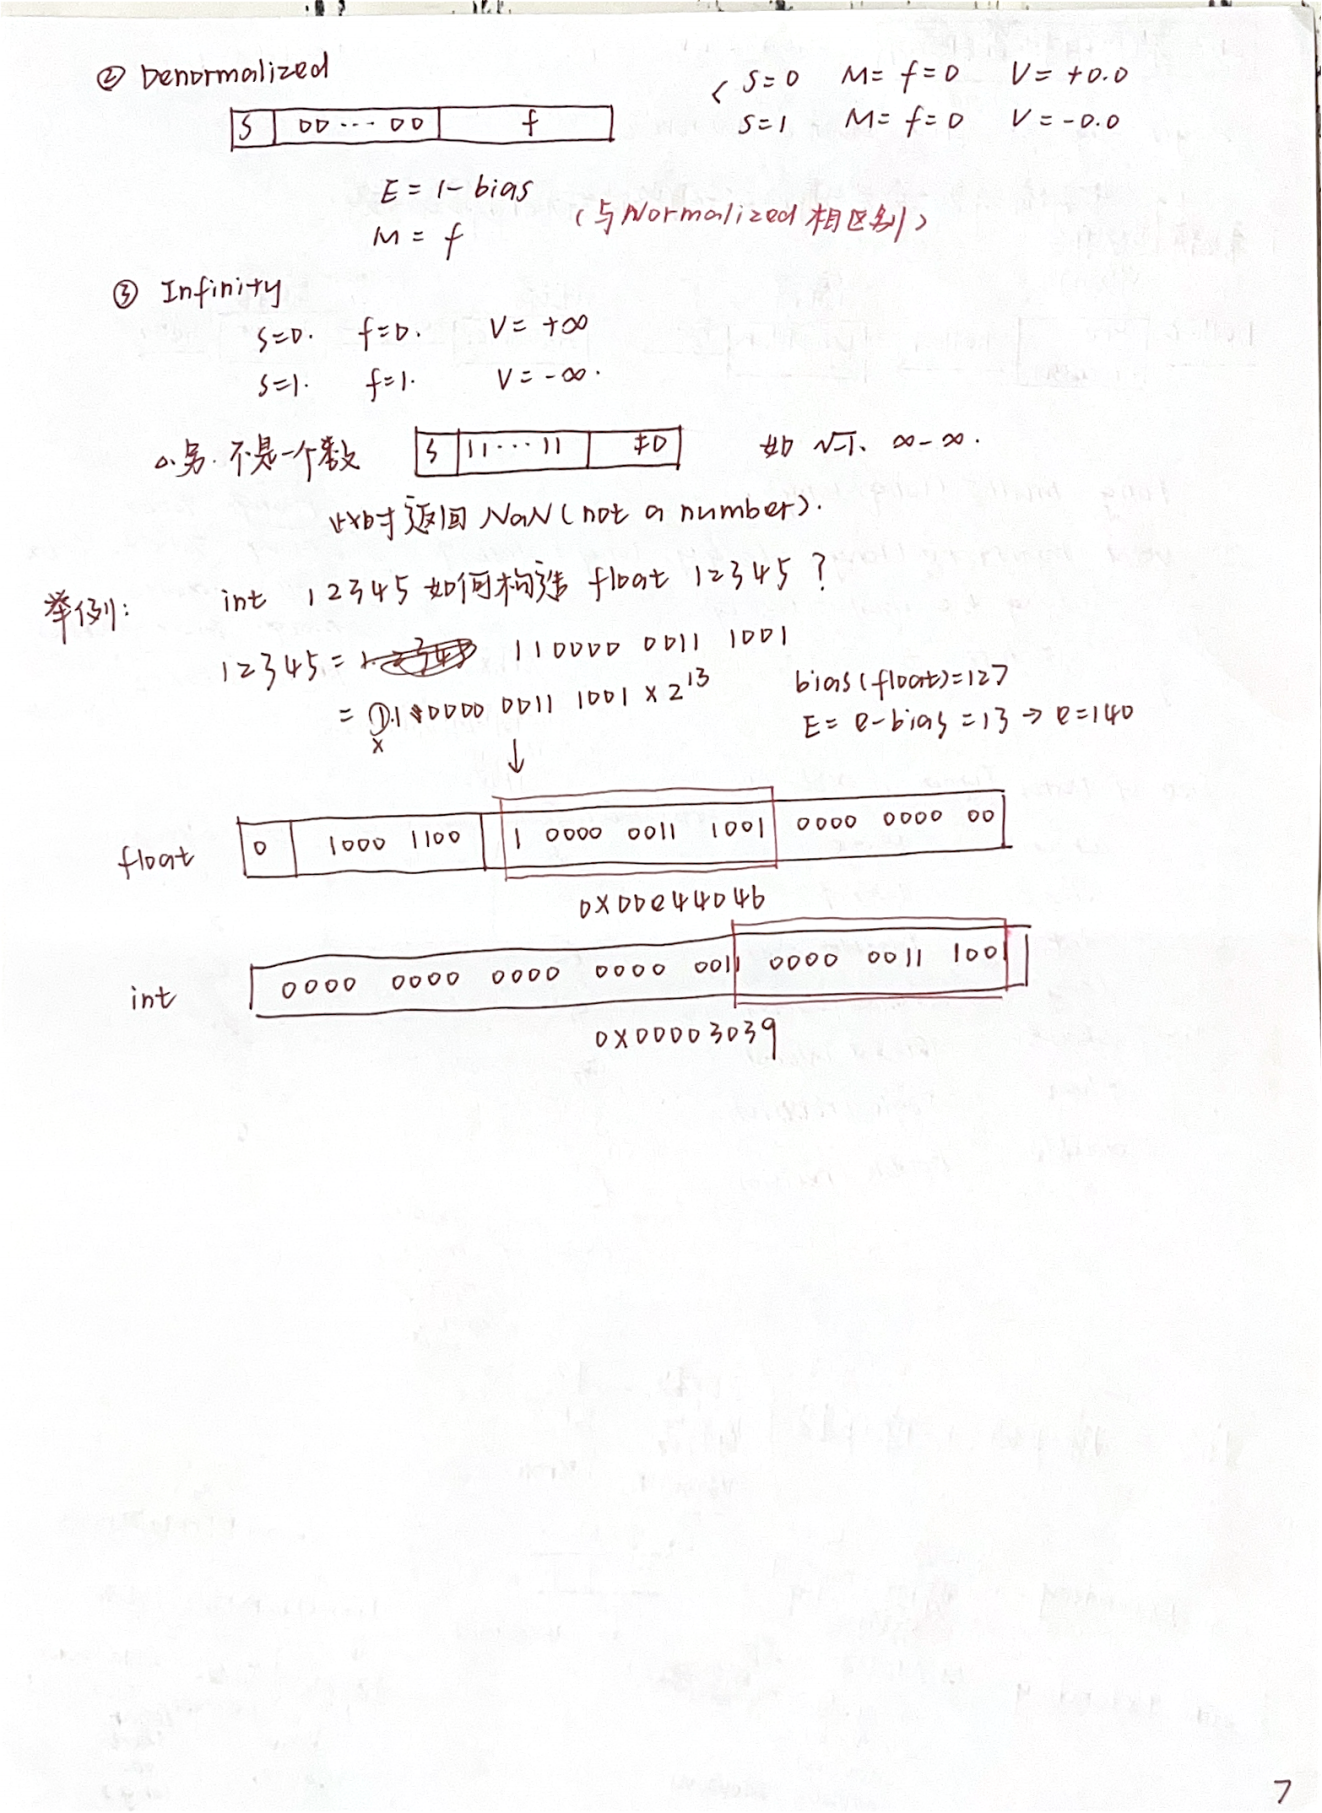 ② Denormalized
S=0 M=f=0 V=+0.0
S=1 M=f=0 V=-0.0
S 00···00 f
E=1-bias
M=f
(与Normalized相区别)
③ Infinity
S=0. f=0. V=+∞
S=1. f=1. V=-∞.
△.另.不是一个数 S 11···11 ≠0 如 √-1、∞-∞.
此时返回NaN(not a number).
举例: int 12345如何构造 float 12345?
12345= 110000 0011 1001
=1.10000 0011 1001×2^13
x
bias(float)=127
E=e-bias=13→e=140
↓
float 0 1000 1100 1 0000 0011 1001 0000 0000 00
0x00e4404b
int 0000 0000 0000 0000 0011 0000 0011 1001
0x00003039
7